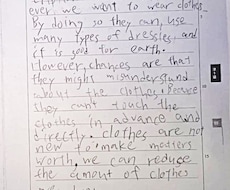 ever we want to wear clothes.
By doing so they can use
many types of dressies, and
it is good for earth.
However, chances are that
they might misunderstand
about the clothes. Because
they can't touch the
clothes in advance and
directly. clothes are not
new to make matters
worth. we can reduce
the amount of clothes